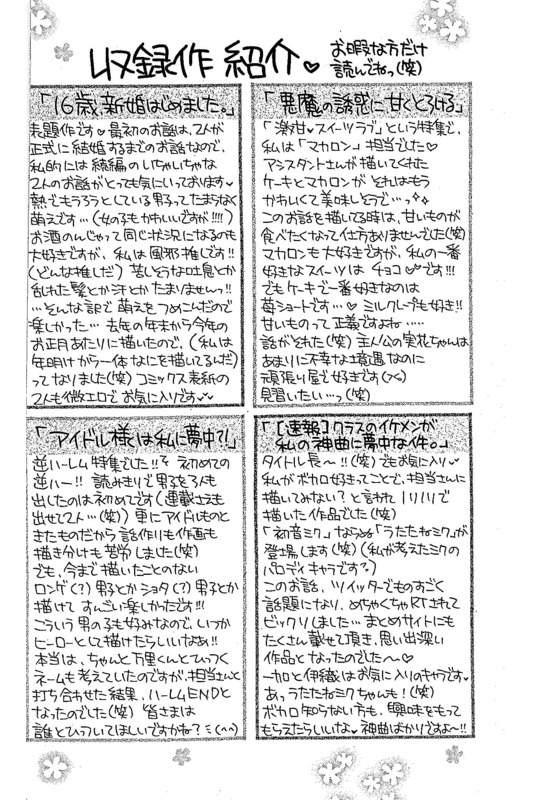 収録作 紹介♡
お暇な方だけ
読んでねっ(笑)
「16歳、新婚はじめました。」
表題作です♡最初のお話は、2人が
正式に結婚するまでのお話なので、
私的には続編のいちゃいちゃな
2人のお話がとっても気にいっております♡
熱でもうろうとしている男子ってたまらなく
萌えです…(女の子もかわいいですが!!!!)
お酒のんじゃって同じ状況になるのも
大好きですが、私は風邪推しです!!
(どんな推しだ) 苦しそうな吐息とか
乱れた髪とか汗とか たまりませんっ!!
…そんな訳で萌えをつめこんだので
楽しかった… 去年の年末から今年の
お正月あたりに描いたので、(私は
年明けから一体なにを描いてるんだ)
ってなりました(笑) コミックス表紙の
2人も微エロで お気に入りです♡
「悪魔の誘惑に甘くとろける」
「激甘♡スイーツラブ」という特集で、
私は「マカロン」担当でした♡
アシスタントさんが描いてくれた
ケーキとマカロンが それはもう
かわいくて美味しそうで…っ✧✧
このお話を描いてる時は、甘いものが
食べたくなって仕方ありませんでした(笑)
マカロンも大好きですが、私の一番
好きなスイーツは チョコ♡です!!!
でもケーキで一番好きなのは
苺ショートです…♡ミルクレープも好き!!
甘いものって正義ですよね……
話がそれた(笑) 主人公の実花ちゃんは
あまりに不幸な境遇なのに
頑張り屋で好きです(>< )
見習いたい…っ(笑)
「アイドル様は私に夢中?!」
逆ハーレム特集でした!! そ 初めての
逆ハー!! 読みきりで男子を3人も
出したのは初めてです(連載さえも
出せて2人…(笑)) 更にアイドルものと
きたものだから 話作りも作画も
描き分けも苦労しました(笑)
でも、今まで描いたことのない
ロンゲ(?)男子とか ショタ(?)男子とか
描けて すんごい楽しかったです!!!
こういう男の子も好みなので、いつか
ヒーローとして描けたらいいなぁ!!
本当は、ちゃんと万里くんとくっつく
ネームも考えていたのですが、担当さんと
打ち合わせた結果、ハーレムENDと
なったのでした(笑) 皆さまは
誰とひっついてほしいですかね?
「[速報]クラスのイケメンが
私の神曲に夢中な件。」
タイトル長〜!!(笑) でもお気に入り♡
私がボカロ好きってことで、担当さんに
描いてみない?と言われ ノリノリで
描いた作品でした(笑)
「初音ミク」ならぬ「うたたねミク」が
登場します(笑) (私が考えたミクの
パロディキャラです?)
このお話、ツイッターでものすごく
話題になり、めちゃくちゃRTされて
ビックリしました… まとめサイトにも
たくさん載せて頂き、思い出深い
作品となったのでした〜♡
一加と伊織はお気に入りのキャラです♡
あ、うたたねミクちゃんも!(笑)
ボカロ知らない方も、興味をもって
もらえたらいいな♡神曲ばかりですよ〜!!